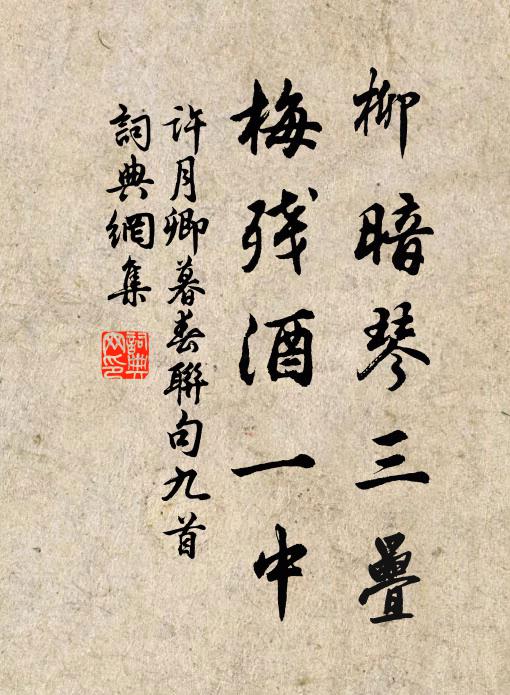 柳暗琴三疊
梅残酒一中
許月卿暮春聯句九首
詞典網集
詞典
网印